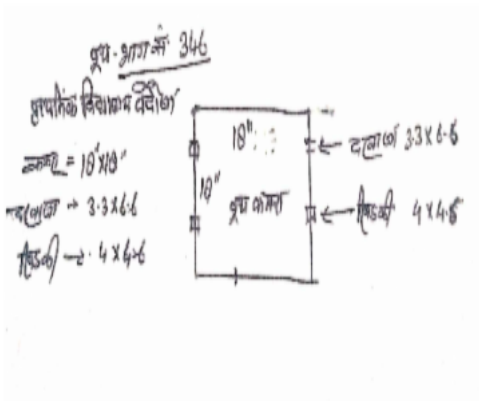 बुथ-भाग सं 346
प्राथमिक विद्यालय
कमरा = 18'×18'
दरवाजा → 3.3×6.6
खिडकी → 4×4.6
18"
18"
बुथ कमरा
← दरवाजा 3.3×6.6
← खिडकी 4×4.6